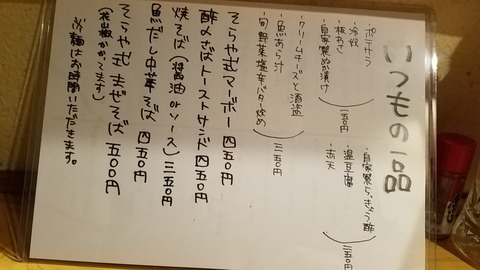 いつもの一品
・ポテサラ
・冷奴
・板わさ
・自家製ぬか漬け
一五〇円
・自家製らっきょう酢
・温豆腐
二五〇円
・クリームチーズと酒盗
・魚あら汁
・旬野菜塩辛バター炒め
三五〇円
そらや式マーボー 四五〇円
酢〆さばトーストサンド 四五〇円
焼そば(醤油 or ソース) 三五〇円
魚だし中華そば 四五〇円
そらや式まぜそば 五〇〇円
(花山椒かかってます)
※麺はお時間いただきます。